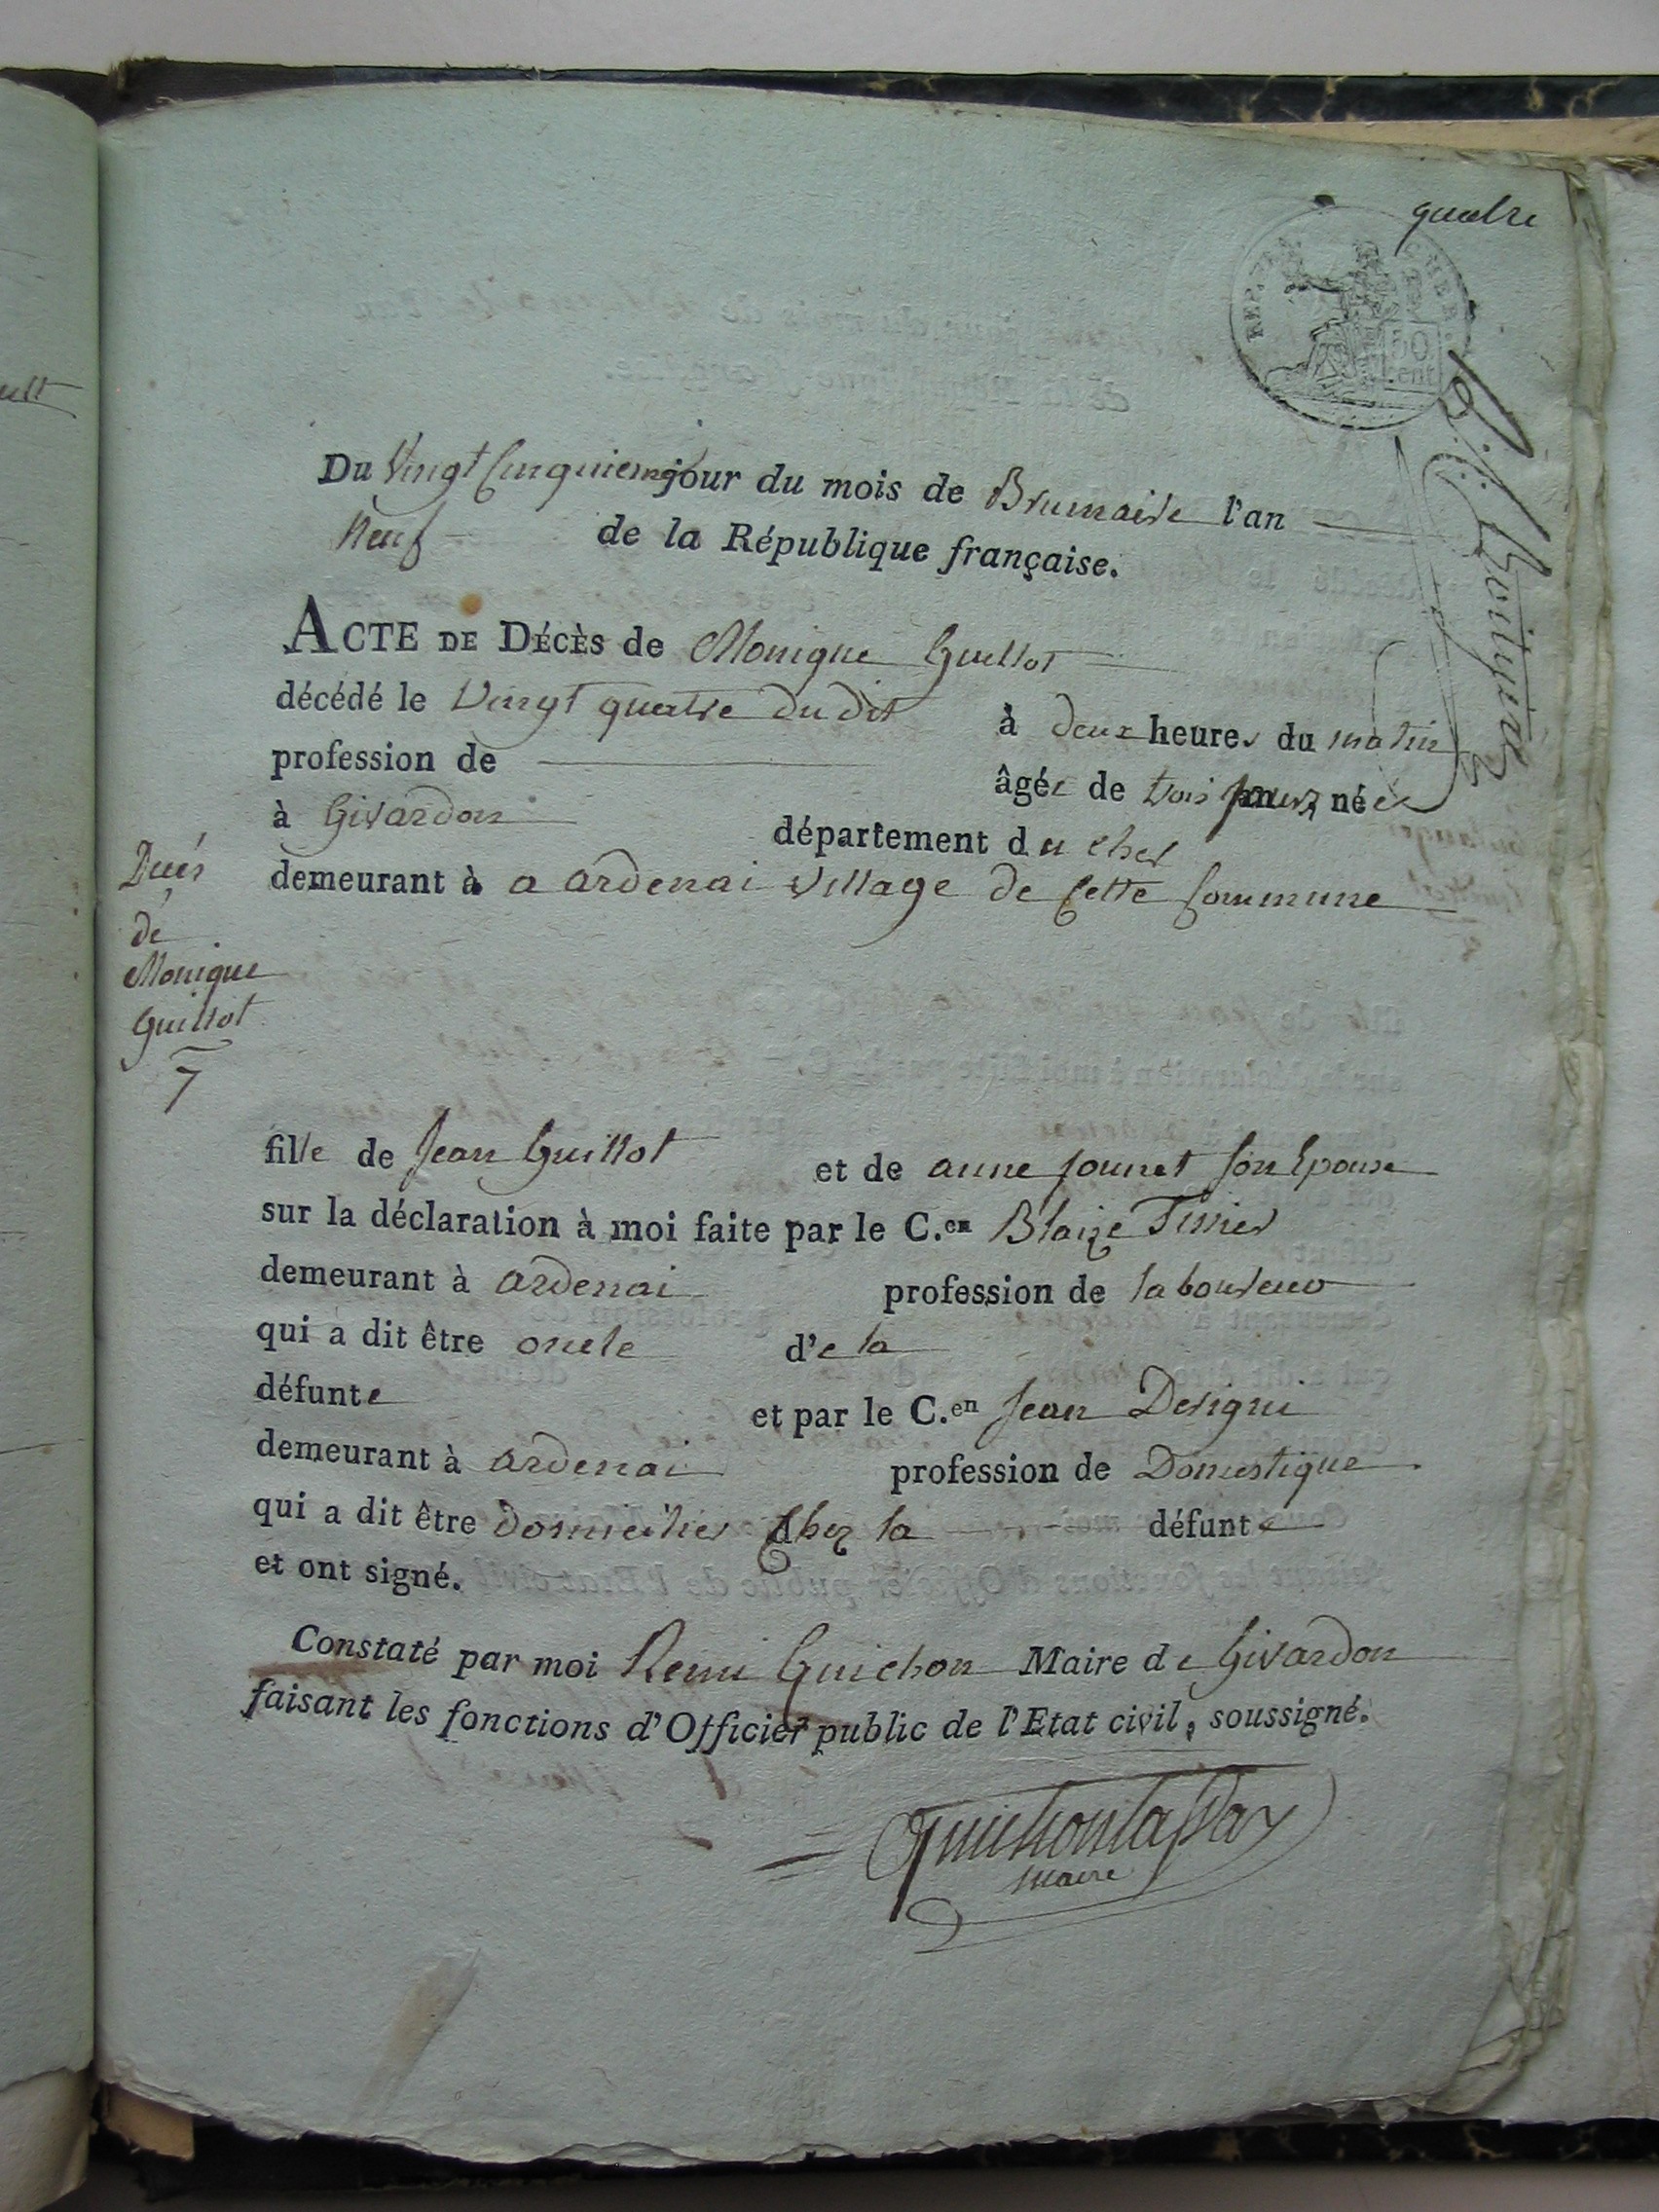 quatre
REP. FRA
CHER
50
cent
Du Vingt Cinquieme jour du mois de Brumaire l'an
neuf de la République française.
ACTE DE DÉCÈS de Monique Guillot
décédé le Vingt quatre du dit à deux heures du matin
profession de âgée de trois jours, née
à Givardon département du cher
demeurant à a ardenai village de Cette Commune
Decés
de
Monique
Guillot
7
fille de Jean Guillot et de anne jounet son Epouse
sur la déclaration à moi faite par le C.en Blaize Tissier
demeurant à ardenai profession de laboureur
qui a dit être oncle d'e la
défunte et par le C.en Jean Desigru
demeurant à ardenai profession de Domestique
qui a dit être domicilier Chez la défunte
et ont signé.
Constaté par moi Remi Guichon Maire de Givardon
faisant les fonctions d'Officier public de l'Etat civil, soussigné.
maire